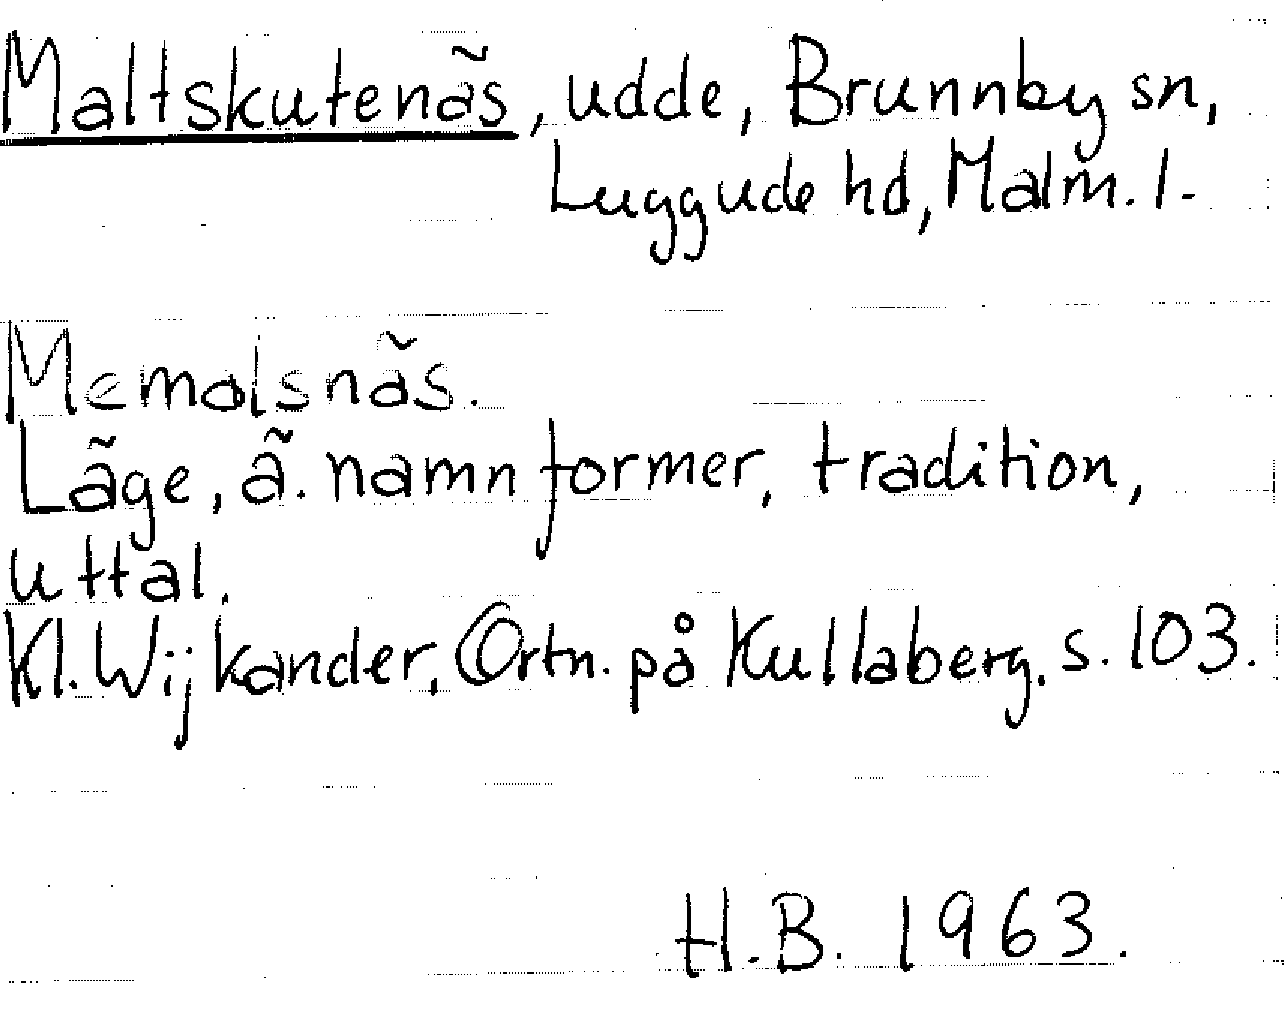 Maltskutenäs, udde, Brunnby sn,
Luggude hd, Malm. l.
Memolsnäs.
Läge, ä. namnformer, tradition,
uttal.
Kl. Wijkander, Ortn. på Kullaberg, s. 103.
H.B. 1963.